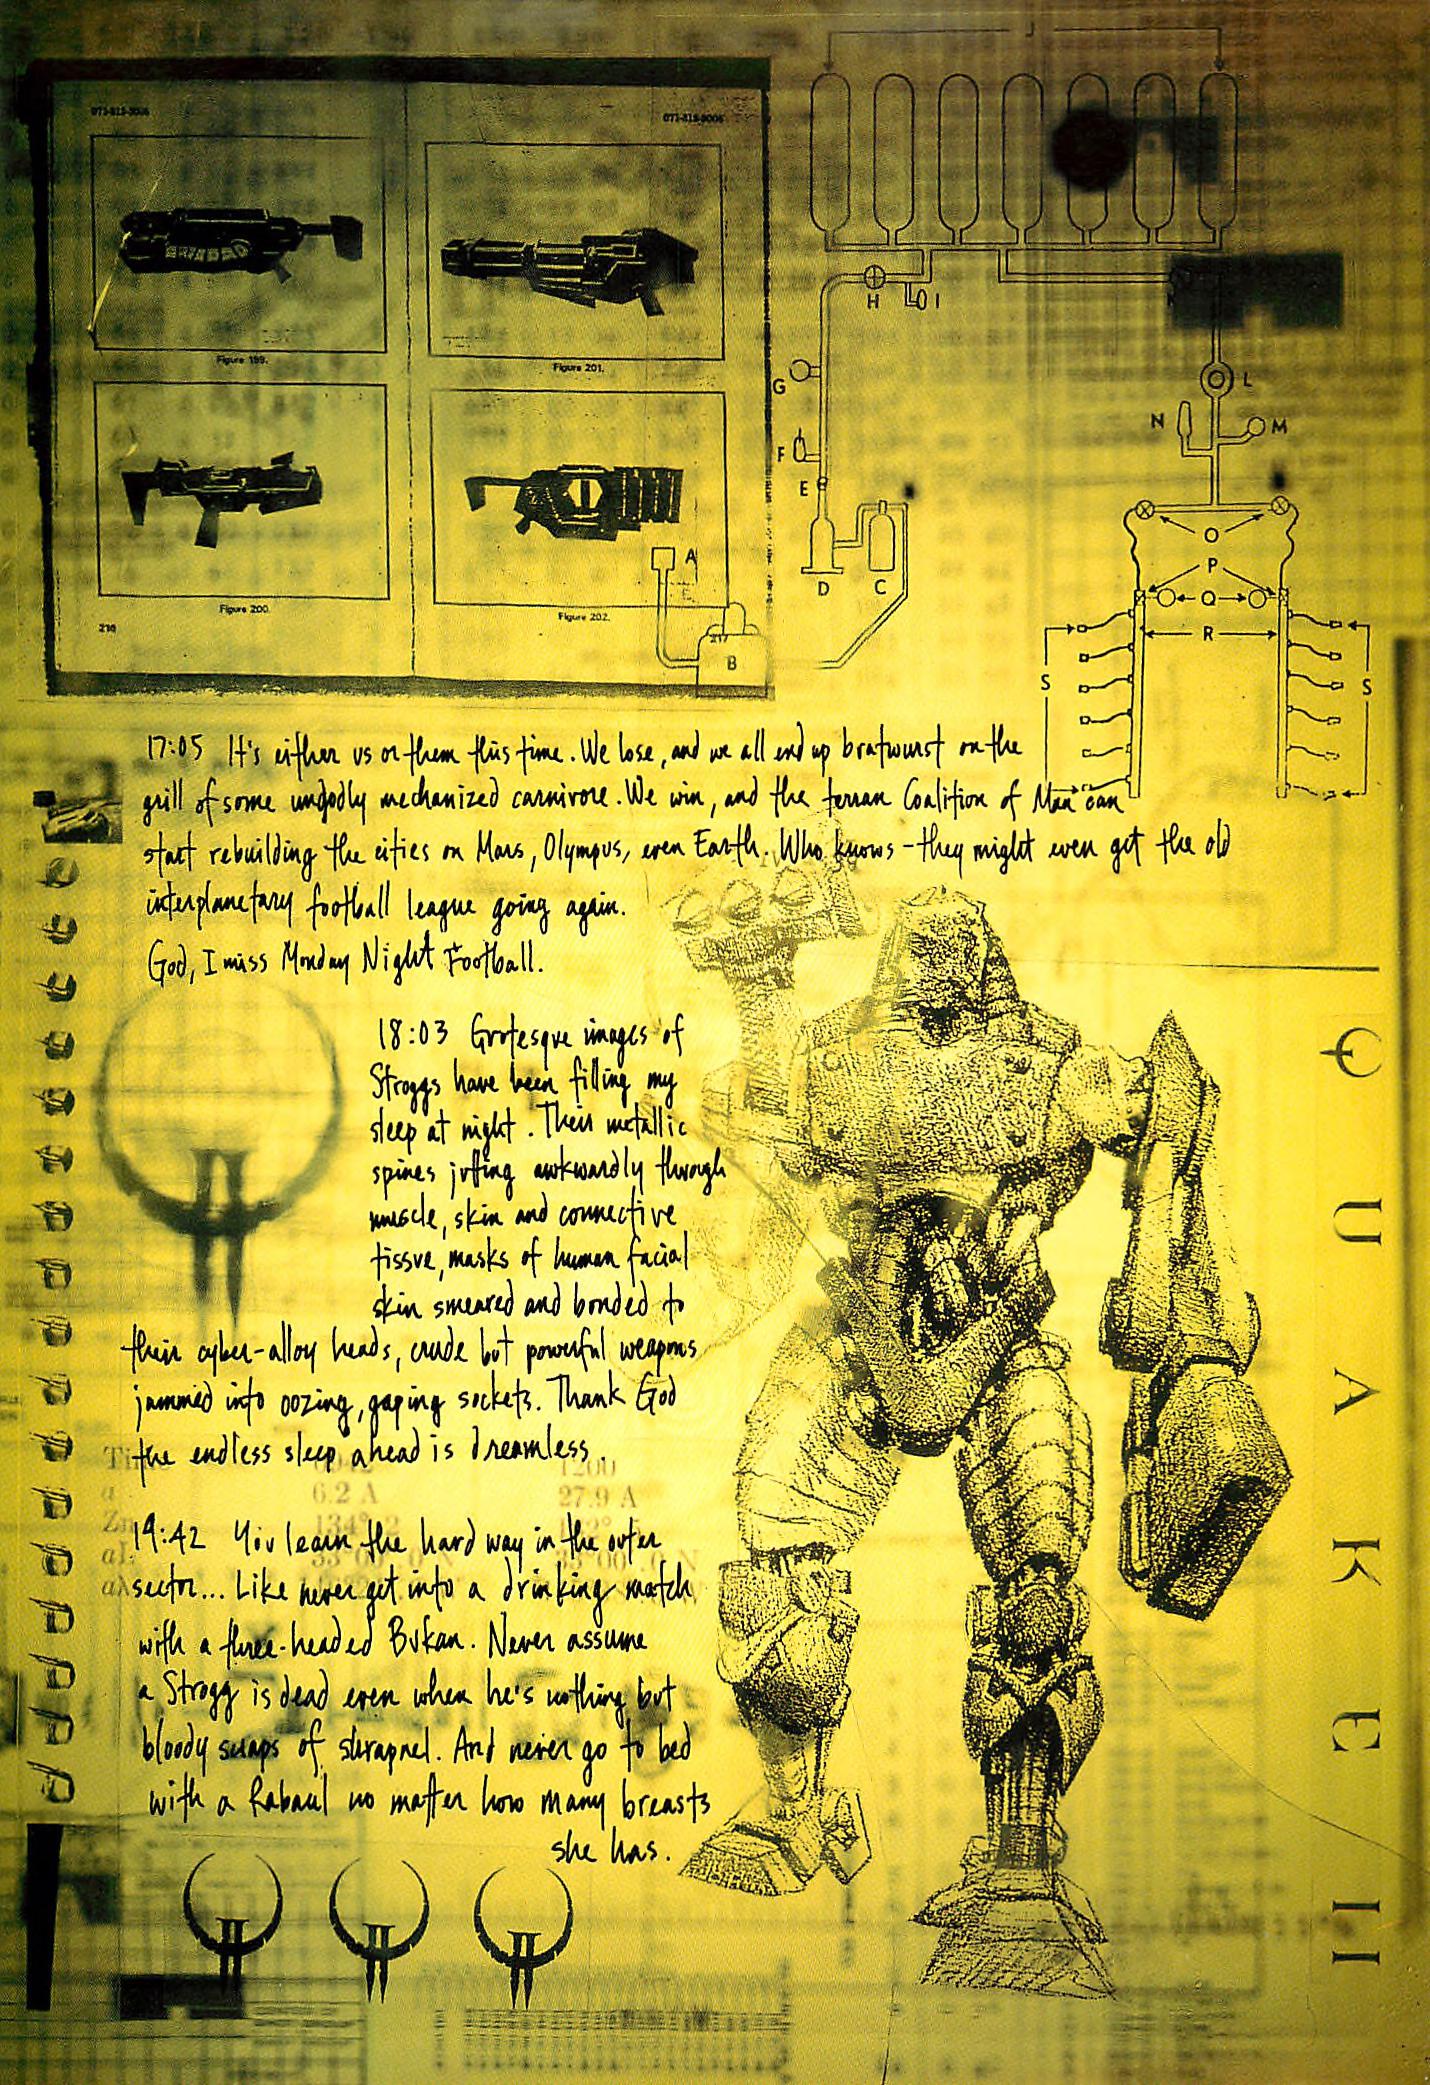 071-815-3006
071-815-3006
Figure 199.
Figure 201.
Figure 200.
Figure 202.
216
217
H
I
G
L
N
M
F
E
A
D
C
O
P
Q
R
B
S
S
17:05 It's either us or them this time. We lose, and we all end up bratwurst on the
grill of some ungodly mechanized carnivore. We win, and the terran Coalition of Man can
start rebuilding the cities on Mars, Olympus, even Earth. Who knows - they might even get the old
interplanetary football league going again.
God, I miss Monday Night Football.
18:03 Grotesque images of
Stroggs have been filling my
sleep at night. Their metallic
spines jutting awkwardly through
muscle, skin and connective
tissue, masks of human facial
skin smeared and bonded to
their cyber-alloy heads, crude but powerful weapons
jammed into oozing, gaping sockets. Thank God
the endless sleep ahead is dreamless.
1200
6.2 A
27.9 A
19:42 You learn the hard way in the outer
sector... Like never get into a drinking match
with a three-headed Bukan. Never assume
a Strogg is dead even when he's nothing but
bloody scraps of shrapnel. And never go to bed
with a Rabaul no matter how many breasts
she has.
QUAKE II